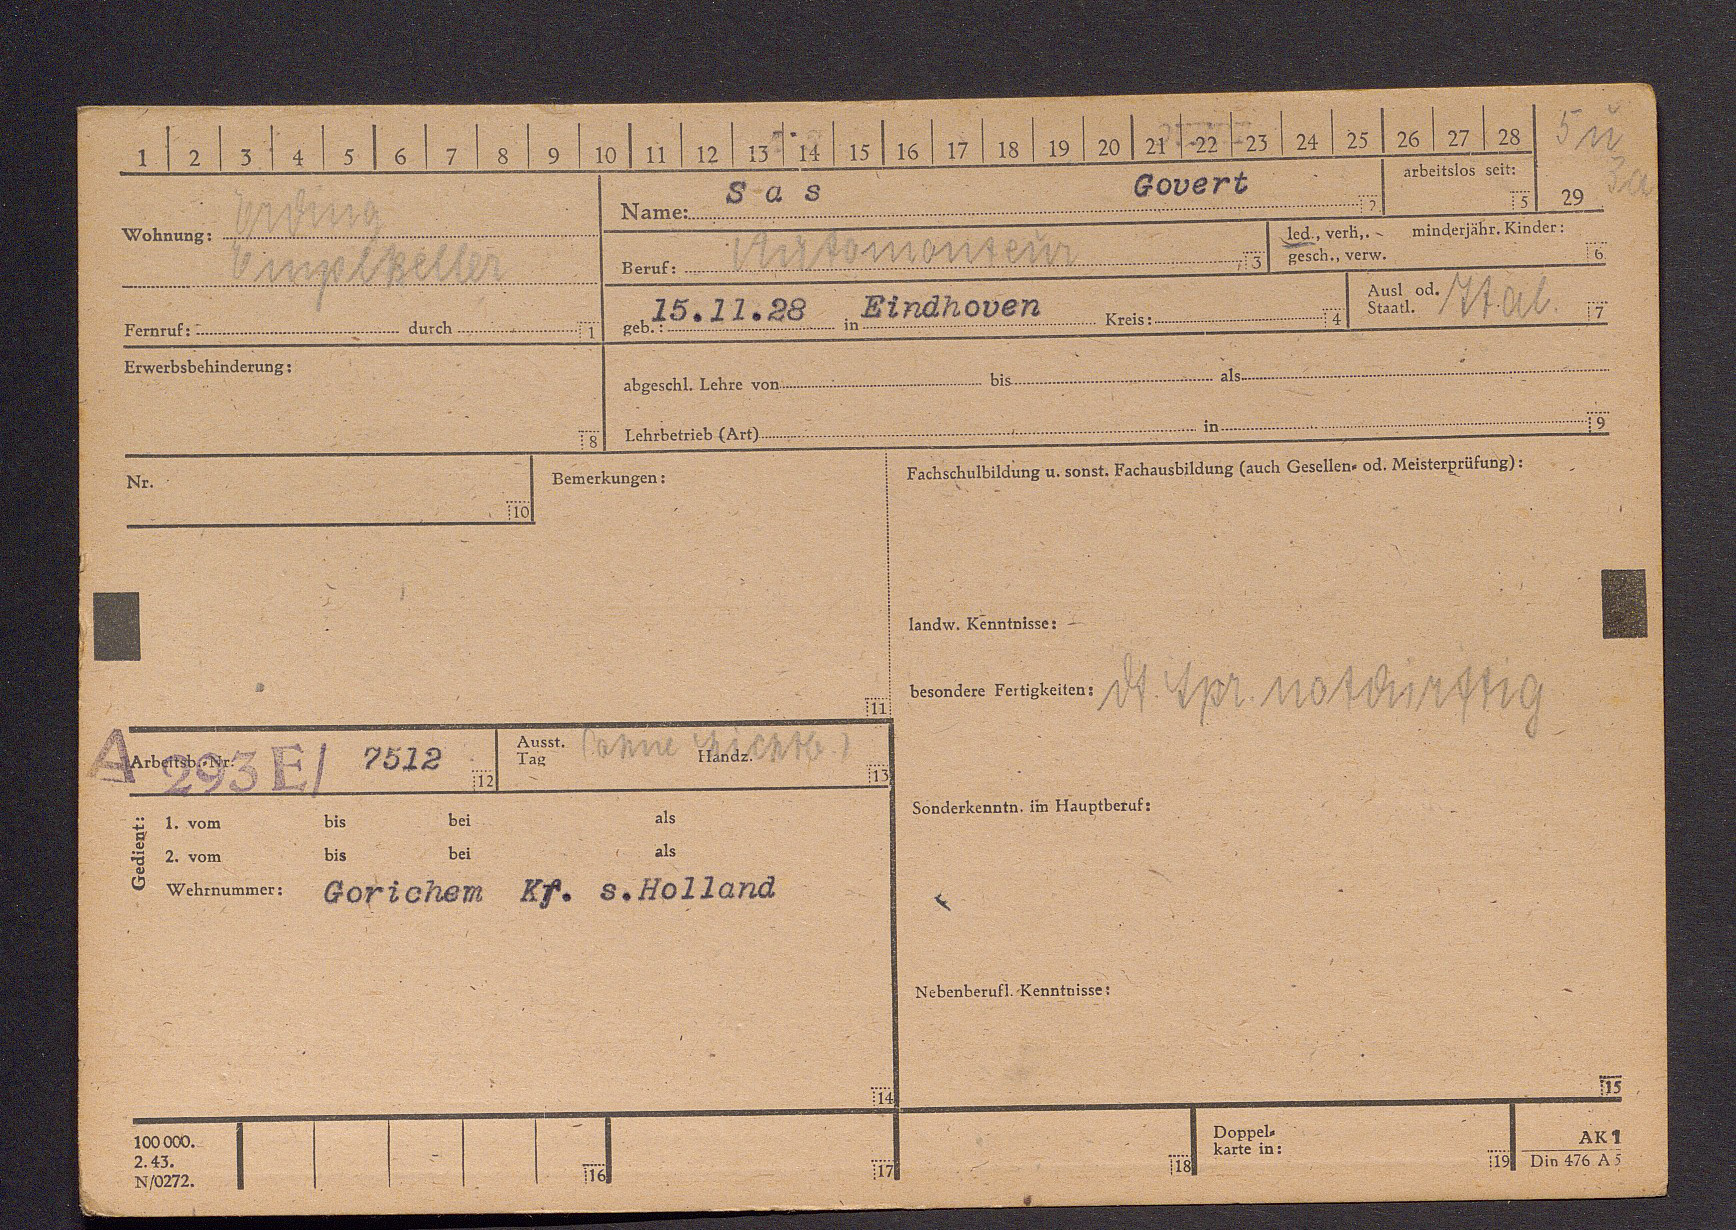 1 2 3 4 5 6 7 8 9 10 11 12 13 14 15 16 17 18 19 20 21 22 23 24 25 26 27 28
5 u
3a
29
Wohnung: Erding
Engelkeller
Fernruf: durch 1
Name: Sas Govert 2
arbeitslos seit: 5
Beruf: Automonteur 3
led., verh., minderjähr. Kinder:
gesch., verw. 6
geb.: 15.11.28 in Eindhoven Kreis: 4
Ausl od.
Staatl. Ital. 7
Erwerbsbehinderung: 8
abgeschl. Lehre von bis als
Lehrbetrieb (Art) in 9
Nr. 10
Bemerkungen: 11
Fachschulbildung u. sonst. Fachausbildung (auch Gesellen- od. Meisterprüfung):
landw. Kenntnisse:
besondere Fertigkeiten: dt. Spr. notdürftig
A Arbeitsb.-Nr. 293 E/ 7512 12
Ausst.
Tag (ohne Lichtb.) Handz. 13
Sonderkenntn. im Hauptberuf:
Gedient:
1. vom bis bei als
2. vom bis bei als
Wehrnummer: Gorichem Kr. s.Holland
14
Nebenberufl. Kenntnisse:
15
100 000.
2. 43.
N/0272.
16
17
18
Doppel-
karte in: 19
AK 1
Din 476 A 5